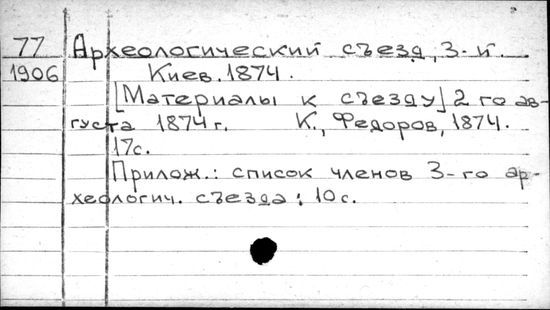 77 Археологический съезд, 3-й.
1906 Киев. 1874.
[Материалы к съезду] 2 го ав-
густа 1874 г. К., Федоров, 1874.
17с.
Прилож.: список членов 3-го ар-
хеологич. съезда; 10 с.